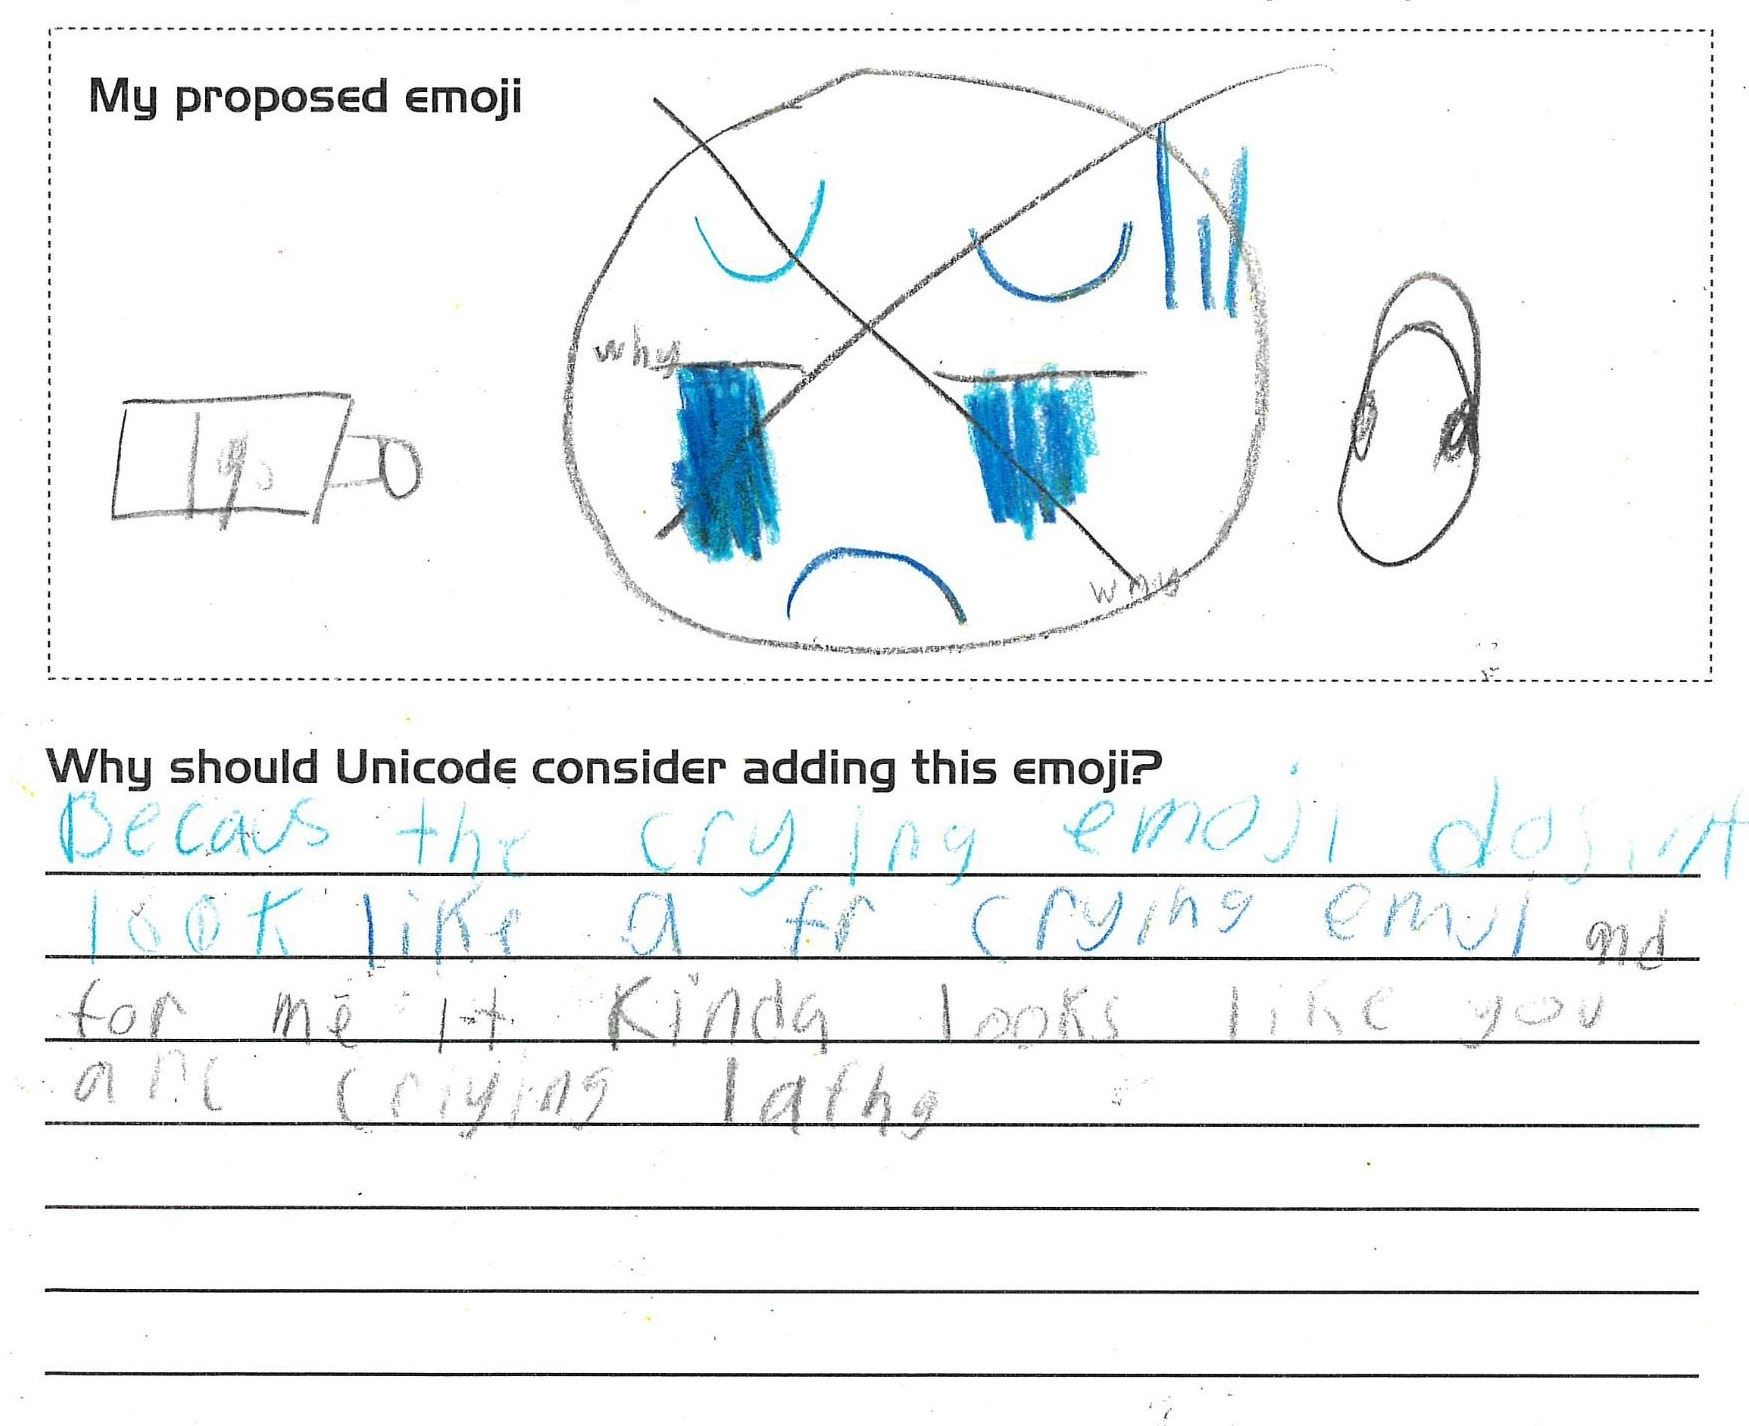 My proposed emoji
lil
why
1%
why
Why should Unicode consider adding this emoji?
Becaus the crying emoji dosint
look like a fr crying emoji and
for me it kinda looks like you
are criying lafhg